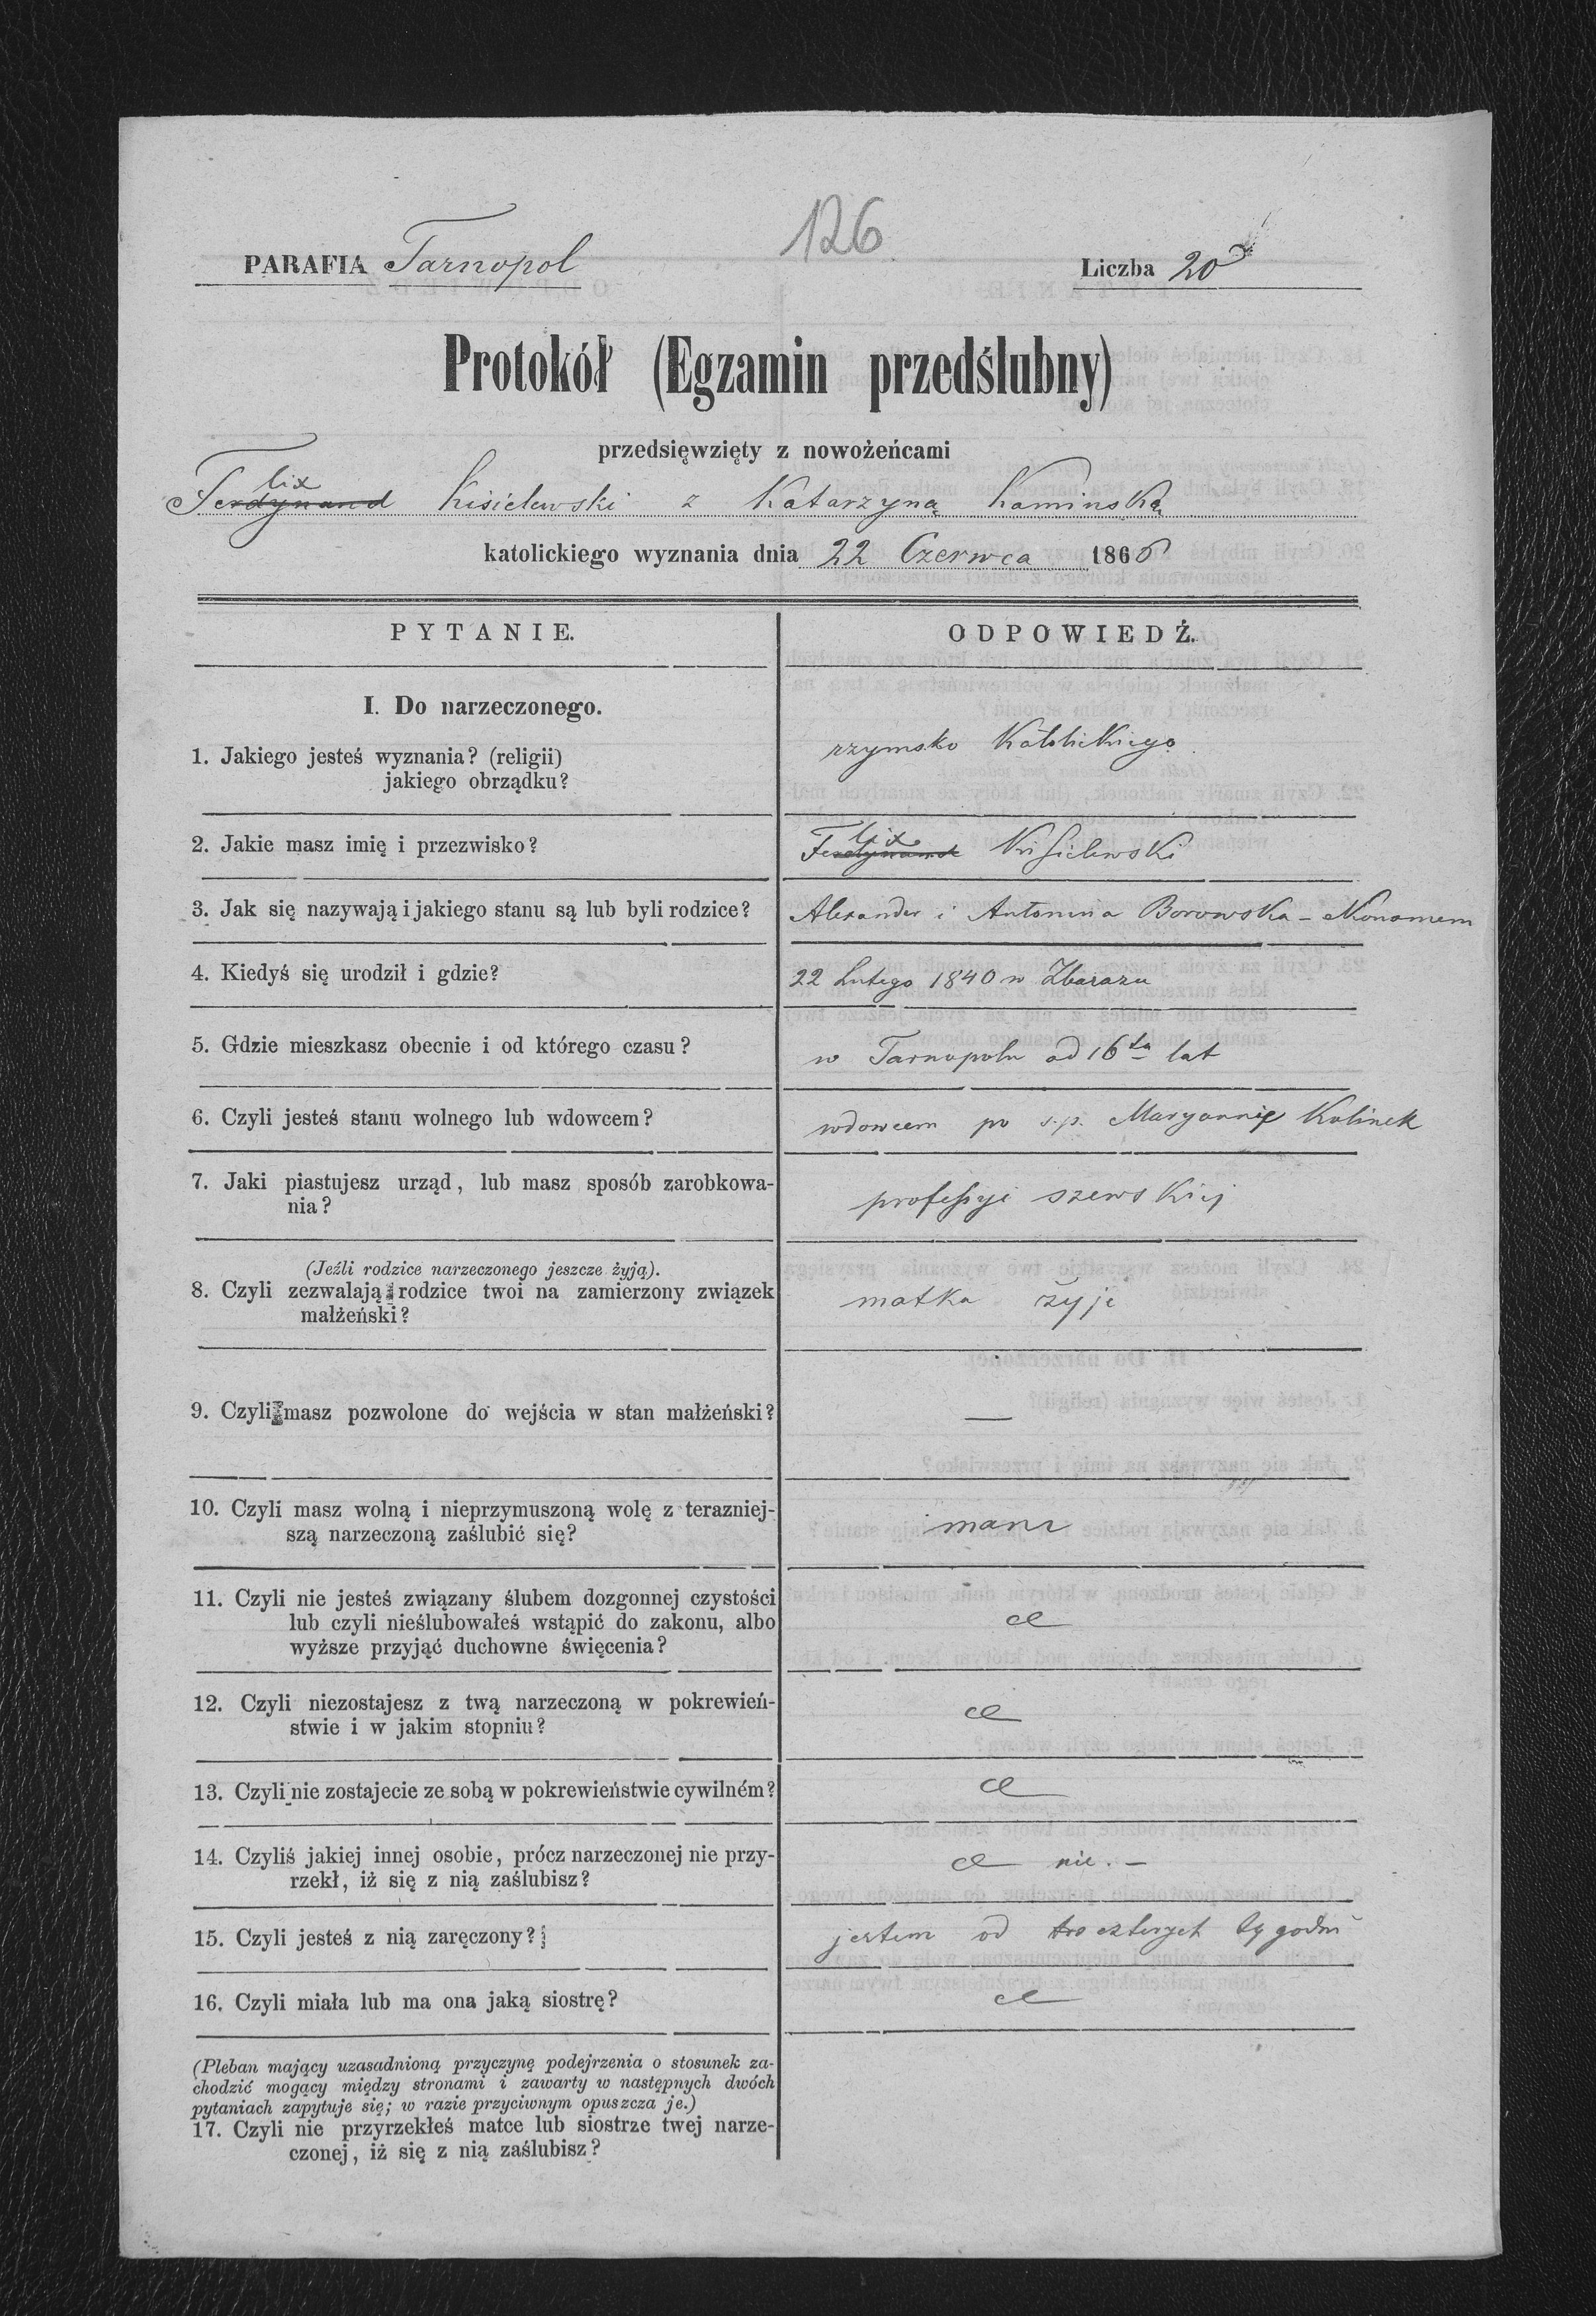 126
PARAFIA Tarnopol
Liczba 20
Protokół (Egzamin przedślubny)
przedsięwzięty z nowożeńcami
lix
Ferdynand Kisielewski z Katarzyną Kaminską
katolickiego wyznania dnia 22 Czerwca 1866
PYTANIE.
ODPOWIEDŹ.
I. Do narzeczonego.
1. Jakiego jesteś wyznania? (religii)
jakiego obrządku?
rzymsko katolickiego
2. Jakie masz imię i przezwisko?
lix
Ferdynand Kisielewski
3. Jak się nazywają i jakiego stanu są lub byli rodzice?
Alexander i Antonina Borowska –
4. Kiedyś się urodził i gdzie?
22 Lutego 1840 w Zbarazu
5. Gdzie mieszkasz obecnie i od którego czasu?
w Tarnopolu od 16tu lat
6. Czyli jesteś stanu wolnego lub wdowcem?
wdowcem po s.p. Maryannie Kalinek
7. Jaki piastujesz urząd, lub masz sposób zarobkowa-
nia?
professyi szewskiej
(Jeźli rodzice narzeczonego jeszcze żyją).
8. Czyli zezwalają rodzice twoi na zamierzony związek
małżeński?
matka żyje
9. Czyli masz pozwolone do wejścia w stan małżeński?
—
10. Czyli masz wolną i nieprzymuszoną wolę z terazniej-
szą narzeczoną zaślubić się?
mam
11. Czyli nie jesteś związany ślubem dozgonnej czystości
lub czyli nieślubowałeś wstąpić do zakonu, albo
wyższe przyjąć duchowne święcenia?
12. Czyli niezostajesz z twą narzeczoną w pokrewień-
stwie i w jakim stopniu?
13. Czyli nie zostajecie ze sobą w pokrewieństwie cywilném?
14. Czyliś jakiej innej osobie, prócz narzeczonej nie przy-
rzekł, iż się z nią zaślubisz?
nie. –
15. Czyli jesteś z nią zaręczony?
jestem od czterych tygodni
16. Czyli miała lub ma ona jaką siostrę?
(Pleban mający uzasadnioną przyczynę podejrzenia o stosunek za-
chodzić mogący między stronami i zawarty w następnych dwóch
pytaniach zapytuje się; w razie przyciwnym opuszcza je.)
17. Czyli nie przyrzekłeś matce lub siostrze twej narze-
czonej, iż się z nią zaślubisz?